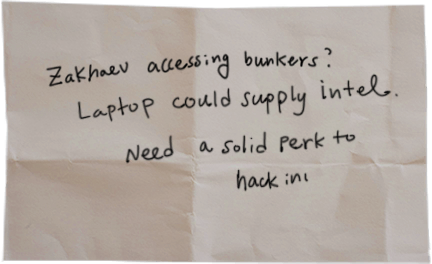 Zakhaev accessing bunkers?
Laptop could supply intel.
Need a solid perk to
hack in!